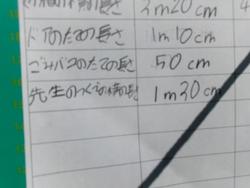 の長さ 2m20cm
ドアのたての長さ 1m10cm
ごみバコのたての長さ 50cm
先生のつくえの横の長さ 1m30cm